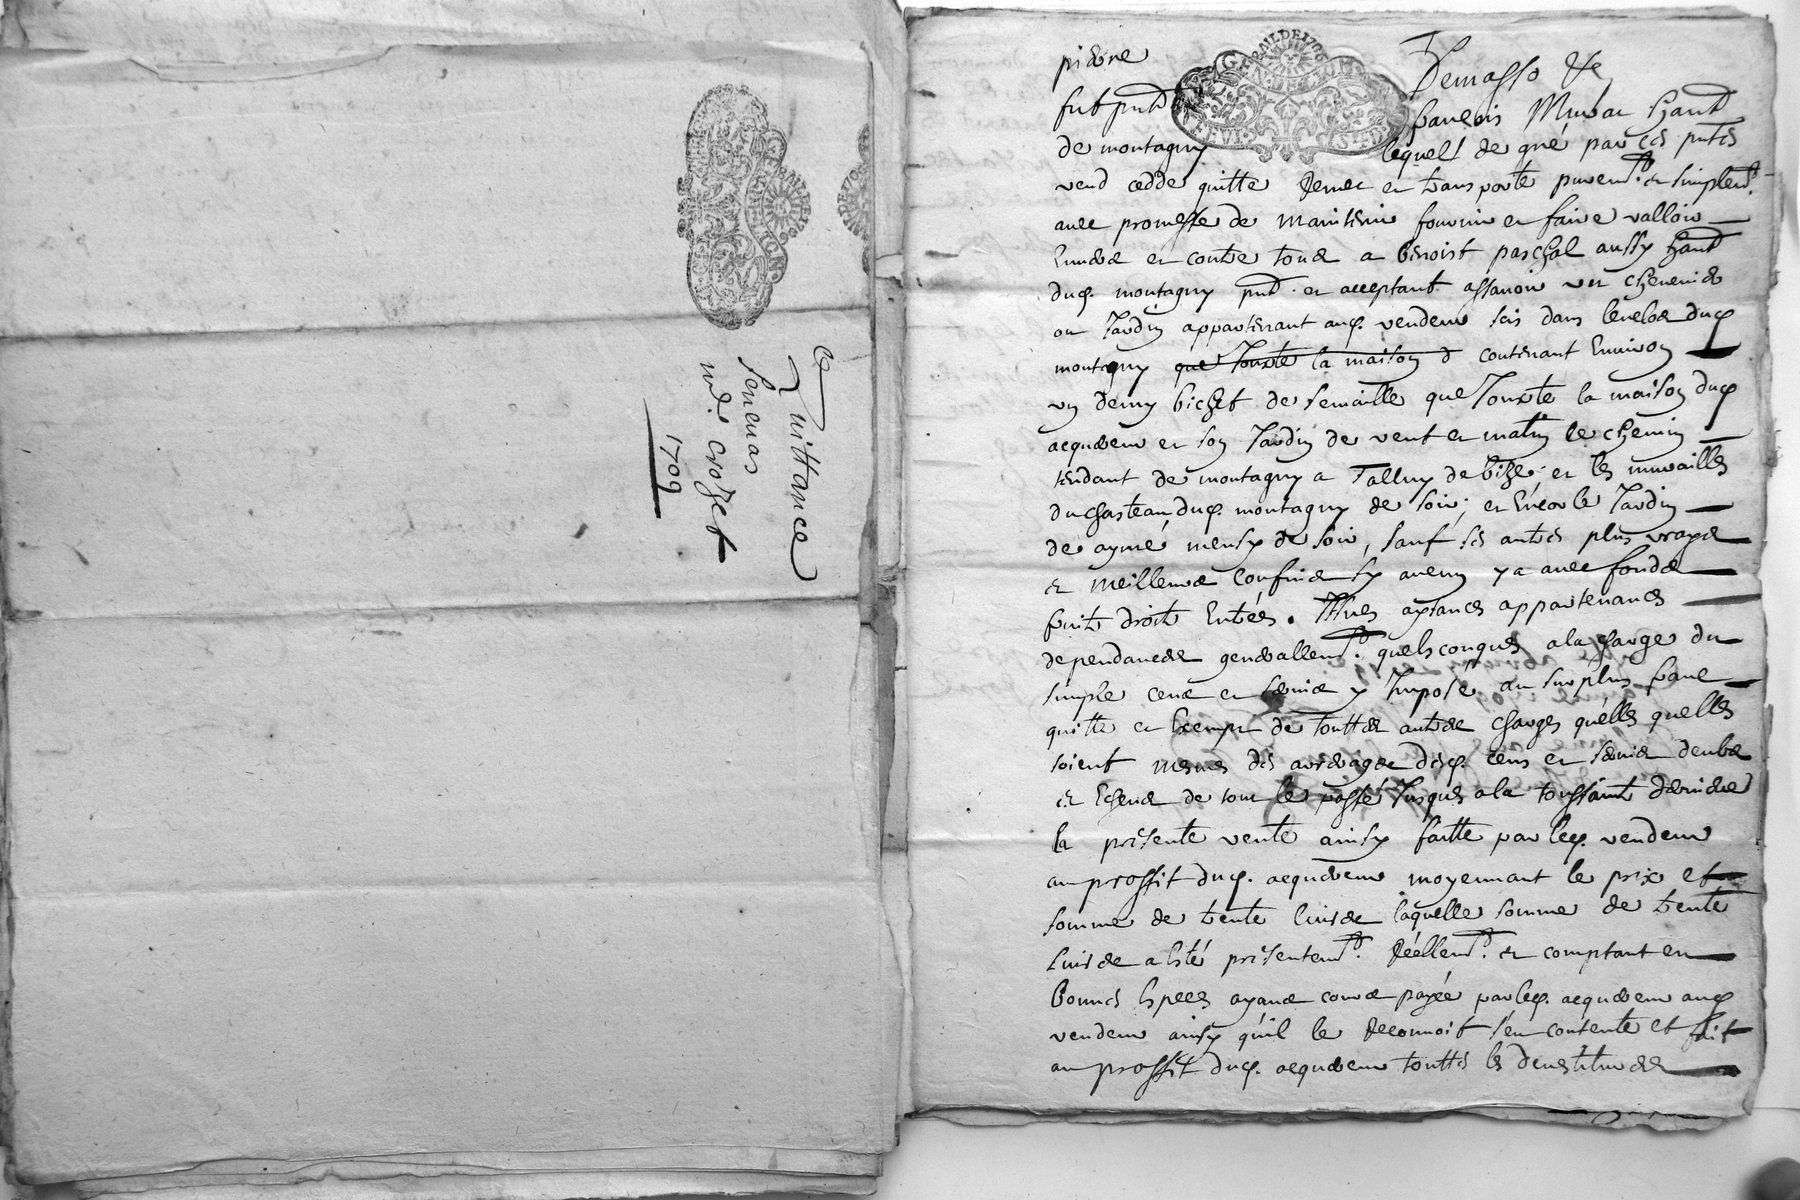 Quittance
senevas
md. crozet
1709
pierre Demasso &c
fut pnt francois Mivar hant
de montagny lequel de gré par ces pntes
vend cedde quitte remet et transporte puremt. et simplemt.
avec promesse de maintenir fournir et faire valloir
envers et contre tous a benoist paschal aussy hant
dud. montagny pnt. et acceptant assavoir un chenevier
ou Jardin appartenant aud. vendeur scis dans lenclos dud
montagny que Jouxte la maison d contenant Environ
un demy bichet de semaille que Jouxte la maison dud
acquereur et son Jardin de vent et matin le chemin
tendant de montagny a Talluy de bize, et les murailles
du chasteau dud. montagny de soir; et Encor le Jardin
de aymé de soir, sauf ses autres plus vrays
et meilleurs confins sy aucun y a avec fonds
fruits droits Entrées. Issues aysances appartenances
dependances generallemt. quelsconques a la charge du
simple cens et servis y Imposé au surplus franc
quitte et Exempt de touttes autres charges quelles quelles
soient mesmes des arrerages desd. cens et servis deubs
et Echeus de tout le passé Jusques a la toussaint derniere
la presente vente ainsy faitte par led. vendeur
au proffit dud. acquereur moyennant le prix et
somme de trente livres laquelle somme de trente
livres a esté presentemt. réellemt. et comptant en
bonnes especes ayans cours payée par led. acquereur aud
vendeur ainsy qu'il le reconnoit s'en contente et fait
au proffit dud. acquereur touttes les devestitures